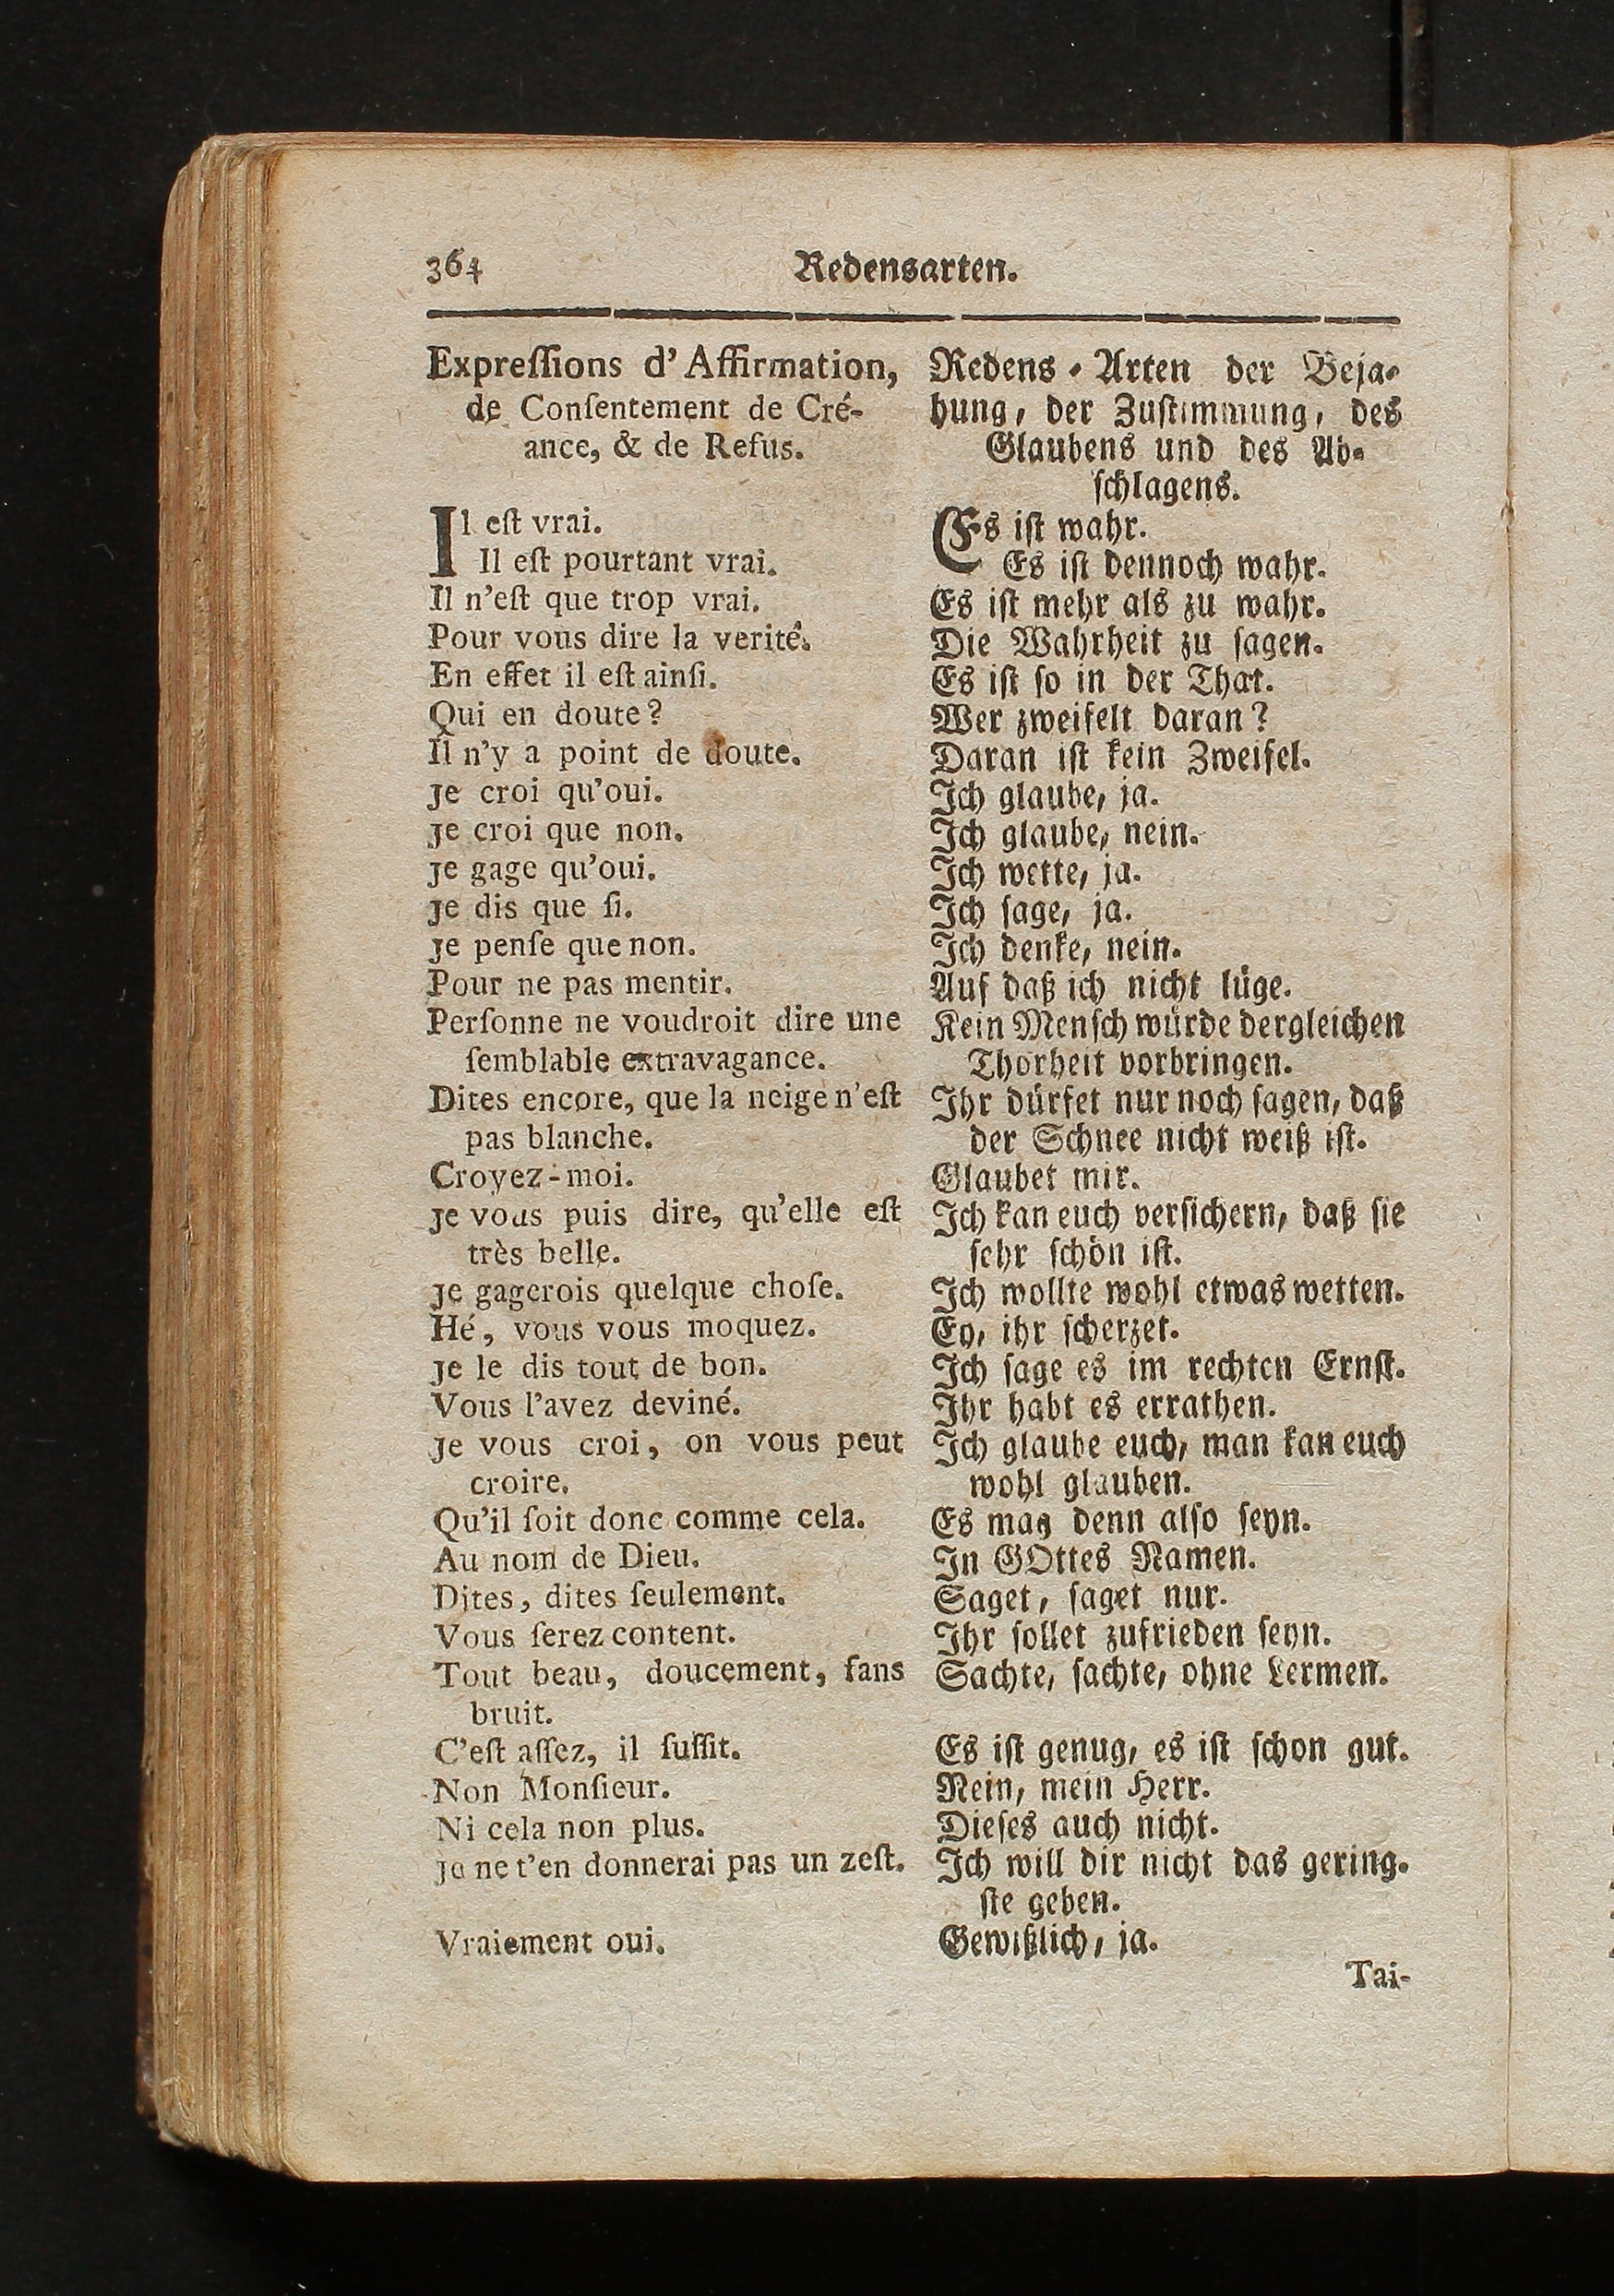 364
Redensarten.
Expreſſions d' Affirmation,
de Conſentement de Cré-
ance, & de Refus.
Il eſt vrai.
Il eſt pourtant vrai.
Il n'eſt que trop vrai.
Pour vous dire la verité.
En effet il eſt ainſi.
Qui en doute?
Il n'y a point de doute.
je croi qu'oui.
je croi que non.
je gage qu'oui.
je dis que ſi.
je penſe que non.
Pour ne pas mentir.
Perſonne ne voudroit dire une
ſemblable extravagance.
Dites encore, que la neige n'eſt
pas blanche.
Croyez-moi.
je vous puis dire, qu'elle eſt
très belle.
je gagerois quelque choſe.
Hé, vous vous moquez.
je le dis tout de bon.
Vous l'avez deviné.
je vous croi, on vous peut
croire.
Qu'il ſoit donc comme cela.
Au nom de Dieu.
Dites, dites ſeulement.
Vous ſerez content.
Tout beau, doucement, ſans
bruit.
C'eſt aſſez, il ſuffit.
Non Monſieur.
Ni cela non plus.
je ne t'en donnerai pas un zeſt.
Vraiement oui.
Redens-Arten der Beja-
hung, der Zuſtimmung, des
Glaubens und des Ab-
ſchlagens.
Es iſt wahr.
Es iſt dennoch wahr.
Es iſt mehr als zu wahr.
Die Wahrheit zu ſagen.
Es iſt ſo in der That.
Wer zweifelt daran?
Daran iſt kein Zweifel.
Ich glaube, ja.
Ich glaube, nein.
Ich wette, ja.
Ich ſage, ja.
Ich denke, nein.
Auf daß ich nicht lüge.
Kein Menſch würde dergleichen
Thorheit vorbringen.
Ihr dürfet nur noch ſagen, daß
der Schnee nicht weiß iſt.
Glaubet mir.
Ich kan euch verſichern, daß ſie
ſehr ſchön iſt.
Ich wollte wohl etwas wetten.
Ey, ihr ſcherzet.
Ich ſage es im rechten Ernſt.
Ihr habt es errathen.
Ich glaube euch, man kan euch
wohl glauben.
Es mag denn alſo ſeyn.
In GOttes Namen.
Saget, ſaget nur.
Ihr ſollet zufrieden ſeyn.
Sachte, ſachte, ohne Lermen.
Es iſt genug, es iſt ſchon gut.
Nein, mein Herr.
Dieſes auch nicht.
Ich will dir nicht das gering-
ſte geben.
Gewißlich, ja.
Tai-